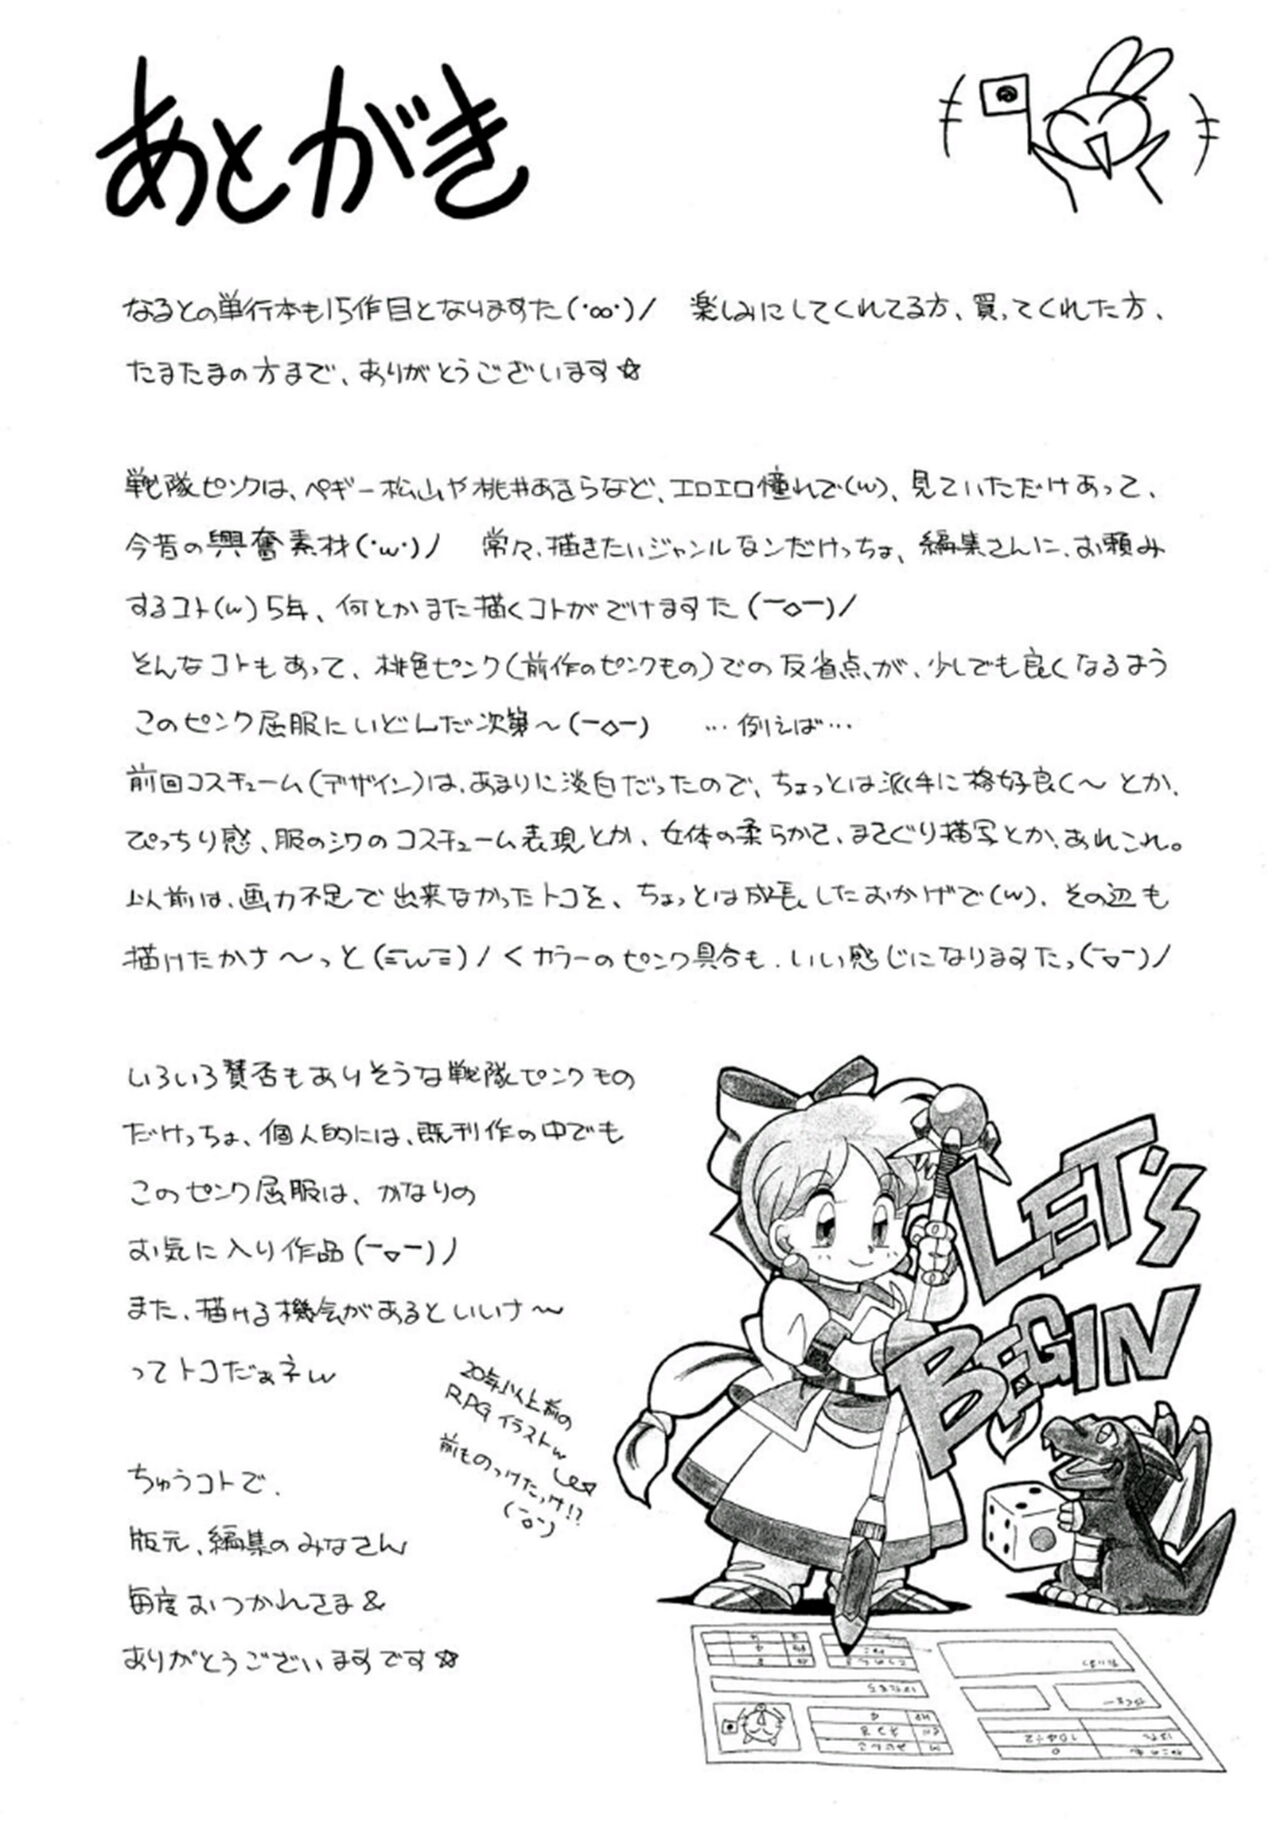 あとがき
なるとの単行本も15作目となりますた(・∞・)ノ 楽しみにしてくれてる方、買ってくれた方、
たまたまの方まで、ありがとうございます☆
戦隊ピンクは、ペギー松山や桃井あきらなど、エロエロ憧れで(w)、見ていただけあって、
今昔の興奮素材(・w・)ノ 常々、描きたいジャンルなンだけっちょ、編集さんに、お頼み
するコト(w)5年、何とかまた描くコトがでけますた(ー◇ー)ノ
そんなコトもあって、桃色ピンク(前作のピンクもの)での反省点が、少しでも良くなるよう
このピンク屈服にいどんだ次第〜(ー◇ー) …例えば…
前回コスチューム(デザイン)は、あまりに淡白だったので、ちょっとは派手に格好良く〜とか、
ぴっちり感、服のシワのコスチューム表現とか、女体の柔らかさ、まさぐり描写とか、あれこれ。
以前は、画力不足で出来なかったトコを、ちょっとは成長したおかげで(w)、その辺も
描けたかナ〜っと(ΞwΞ)ノ<カラーのピンク具合も、いい感じになりますたっ(ー▽ー)ノ
いろいろ賛否もありそうな戦隊ピンクもの
だけっちょ、個人的には、既刊作の中でも
このピンク屈服は、かなりの
お気に入り作品(ー▽ー)ノ
また、描ける機会があるといいナ〜
ってトコだぁネw
ちゅうコトで、
版元、編集のみなさん
毎度おつかれさま&
ありがとうございますです☆
20年以上前の
RPGイラストw
前ものっけたっけ!?
(ー◇ー)
LET'S
BEGIN
HP
M
0
104÷2